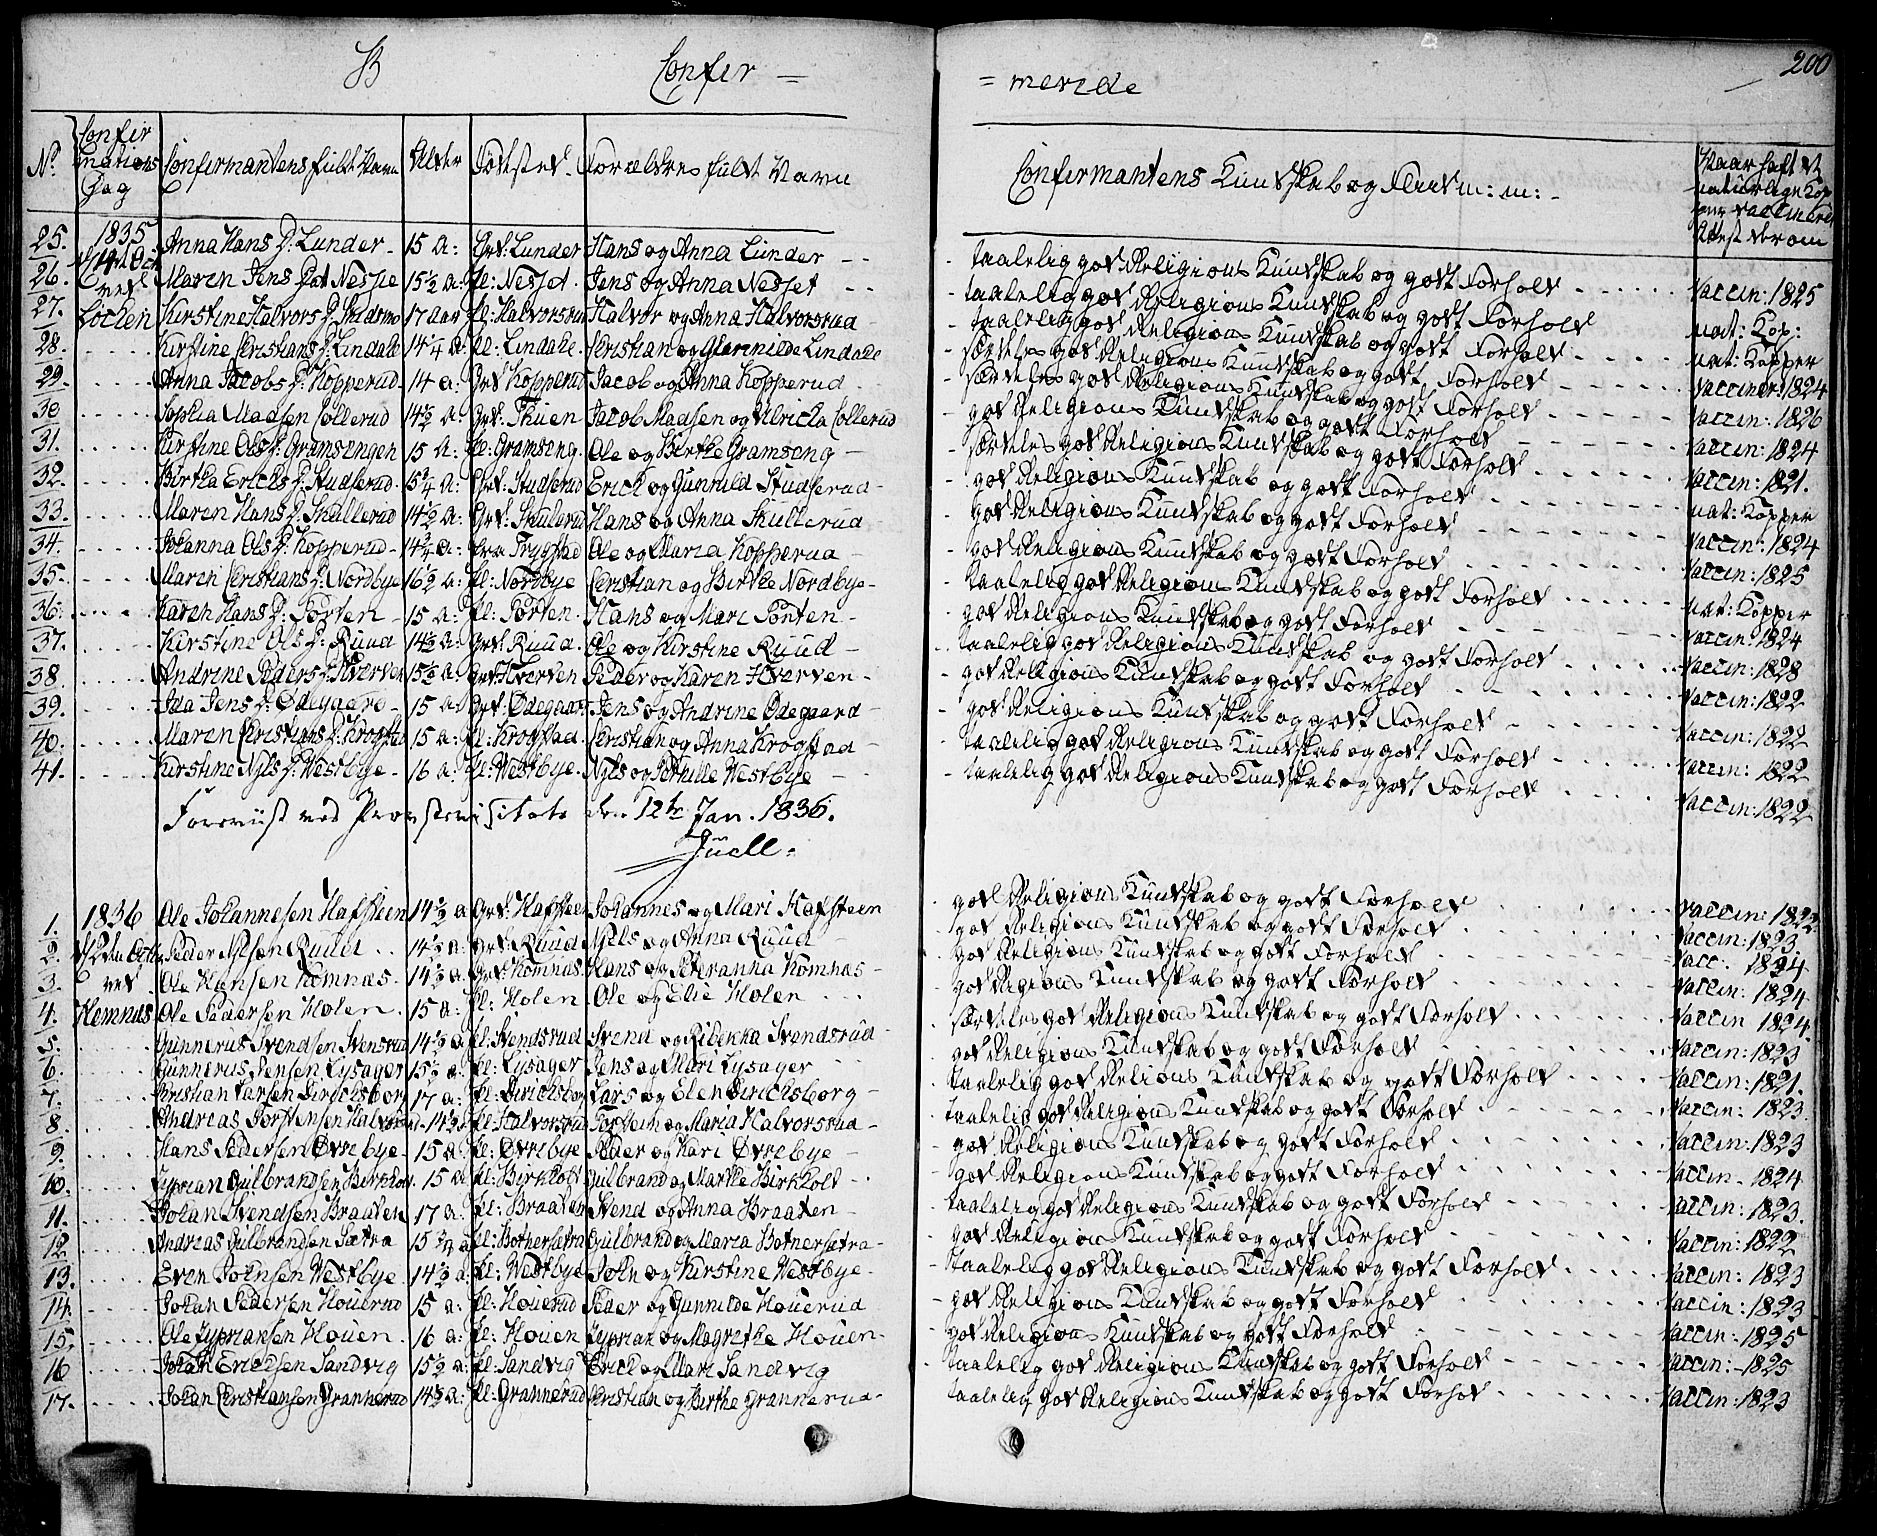 B Confir = = merede 200
No. Confirmations Dag Confirmantens fulde Navn Alder Fødested Forældres fulde Navn Confirmantens Kundskab og Flid m: m: Naar haft de naturlige Kopper vaccineret Attest derom
25. 1835 Anna Hans D: Lunder 15 A: Grd: Lunder Hans og Anna Lunder taalelig god Religions Kundskab og godt Forhold Vaccin: 1825
26. Maren Jens Dat Nesset 15½ a: pl: Nesset Jens og Anna Nesset taalelig god Religions Kundskab og godt Forhold nat: Kop:
27. ved Løcken Kirstine Halvors D: 17 Aar pl: Halvorsrud Halvor og Anna Halvorsrud taalelig god Religions Kundskab og godt Forhold nat: Kopper
28. Kirstine Christians D: Lindale 14¼ a: pl: Lindale Christian og Lindale særdeles god Religions Kundskab og godt Forhold Vaccineret 1824
29. Anna Jacobs D: Kopperud 14 a: Grd Kopperud Jacob og Anna Kopperud særdeles god Religions Kundskab og godt Forhold Vaccin: 1826
30 Sophia Madsen Collerud 14½ a: Grd: Thuen Jacob Madsen og Ulricka Collerud god Religions Kundskab og godt Forhold Vaccin: 1824
31. Kirstine Ols D: Gramsengen 15 A: pl: Gramseng Ole og Birthe Gramseng særdeles god Religions Kundskab og godt Forhold Vaccin: 1821.
32. Birthe Ericks D: Studserud 15¼ a: Grd: Studserud Erick og Gunnild Studserud god Religions Kundskab og godt Forhold nat: Kopper
33. Maren Hans D: Skullerud 14½ a: Grd: Skulerud Hans og Anna Skullerud god Religions Kundskab og godt Forhold Vaccin: 1824
34. Johanna Ols D: Kopperud 14¾ a: fra Trygstad Ole og Maria Kopperud god Religions Kundskab og godt Forhold Vaccin: 1825
35. Maren Christians D: Nordbye 16½ a: pl: Nordbye Christian og Birthe Nordbye taalelig god Religions Kundskab og godt Forhold nat: Kopper
36. Karen Hans D: Porten 15 a: pl: Porten Hans og Mari Porten god Religions Kundskab og godt Forhold Vaccin 1824
37. Kirstine Ols D: Ruud 14½ a: Grd: Ruud Ole og Kirstine Ruud taalelig god Religions Kundskab og godt Forhold Vaccin: 1828
38. Andrine Peders D: Hverven 15½ a: Grd Hverven Peder og Karen Hverven god Religions Kundskab og godt Forhold Vaccin: 1822
39. Ida Jens D: Ødegaard 15 a: Grd: Ødegaard Jens og Andrine Ødegaard god Religions Kundskab og godt Forhold Vaccin: 1822
40. Maren Christians D: Krogstad 15 a: pl: Krogstad Christian og Anna Krogstad taalelig god Religions Kundskab og godt Forhold Vaccin: 1822
41. Kirstine Nils D: Westbye 16 a: pl: Westbye Nils og Pernille Westbye taalelig god Religions Kundskab og godt Forhold Vaccin: 1822
Foreviist ved Provstevisitats den 12te Jan. 1836.
Juell.
1. 1836 Ole Johannesen Hafsteen 14½ a Grd: Hafsteen Johannes og Mari Hafsteen god Religions Kundskab og godt Forhold Vaccin: 1822
2. Peder Nilsen Ruud 14½ a: Grd: Ruud Nils og Anna Ruud god Religions Kundskab og godt Forhold Vaccin: 1823
3. ved Ole Hansen Komnæs 14½ a: Grd Komnæs Hans og Peteranna Komnæs god Religions Kundskab og godt Forhold Vacc: 1824
4. Hemnæs Ole Pedersen Holen 15 a: pl: Holen Ole og Elie Holen god Religions Kundskab og godt Forhold Vaccin: 1824
5. Gunnerus Svendsen Svensrud 14½ a pl: Svendsrud Svend og Ribekka Svendsrud særdeles god Religions Kundskab og godt Forhold Vaccin 1824.
6. Gunnerus Jensen Lysager 15½ a: pl: Lysager Jens og Mari Lysager god Religions Kundskab og godt Forhold Vaccin: 1823
7. Christian Larsen Diricksborg 17 a: pl: Diricksborg Lars og Elen Diricksborg taalelig god Relions Kundskab og godt Forhold Vaccin: 1821.
8. Andreas Torstensen Halvorsrud 14½ pl: Halvorsrud Torsten og Maria Halvorsrud taalelig god Religions Kundskab og godt Forhold Vaccin: 1823.
9. Hans Pedersen Øvrebye 15 a pl: Øvrebye Peder og Kari Øvrebye god Religions Kundskab og godt Forhold Vaccin: 1823
10. Zyprian Gulbrandsen Birkholt 15 a pl: Birkholt Gulbrand og Marthe Birkholt god Religions Kundskab og godt Forhold Vaccin 1824
11. Johan Svendsen Braaten 17 a: pl: Braaten Svend og Anna Braaten taalelig god Religions Kundskab og godt Forhold Vaccin: 1823.
12 Andreas Gulbrandsen Sætra 15¼ a pl: Botnersætra Gulbrand og Maria Botnersætra god Religions Kundskab og godt Forhold Vaccin: 1822
13. Even Johnsen Westbye 14½ a pl: Westbye John og Kirstine Westbye taalelig god Religions Kundskab og godt Forhold Vaccin: 1823
14. Johan Pedersen Houerud 15 a: pl: Houerud Peder og Gunnilde Houerud god Religions Kundskab og godt Forhold Vaccin: 1823
15. Ole Zypriansen Houen 16 a: pl: Houen Zyprian og Magrethe Houen god Religions Kundskab og godt Forhold Vaccin: 1825
16 Johan Ericksen Sandvig 15½ a: pl: Sandvig Erick og Mari Sandvig taalelig god Religions Kundskab og godt Forhold Vaccin: 1825
17. Johan Christiansen Grannerud 14½ a: pl: Grannerud Christian og Birthe Grannerud taalelig god Religions Kundskab og godt Forhold Vaccin: 1823